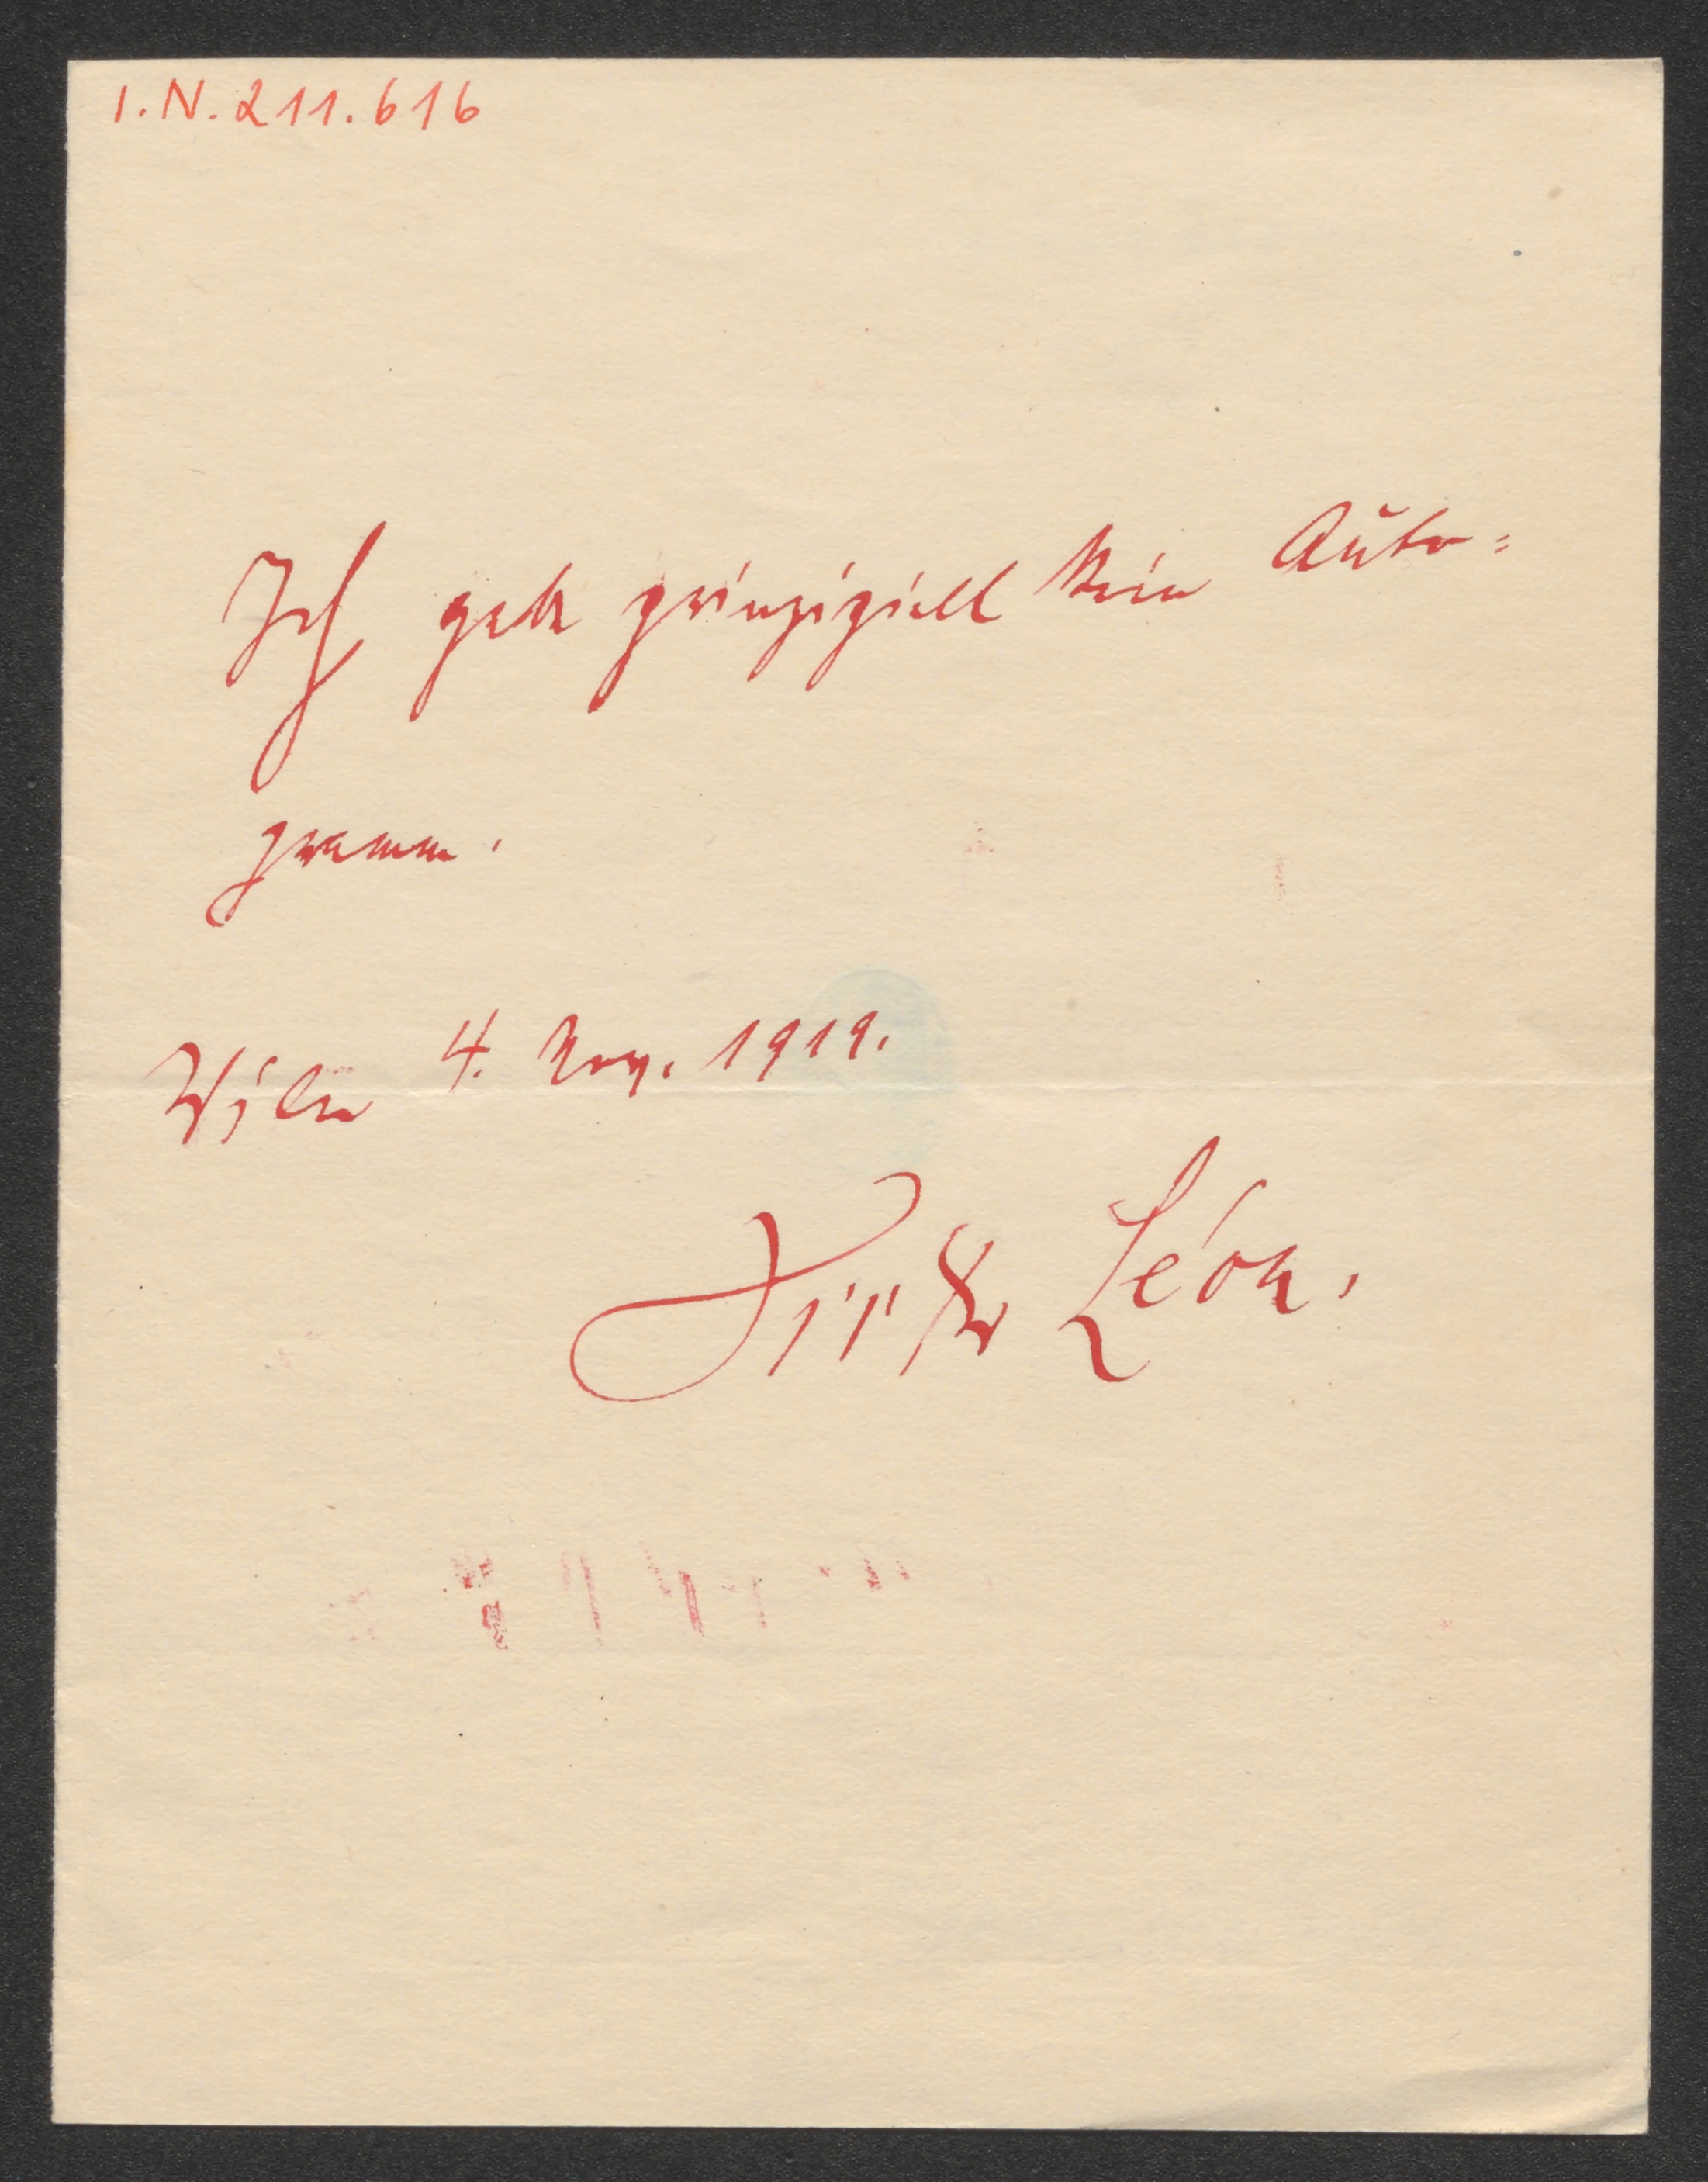 I.N.211.616
Ich gebe prinzipiell kein Auto=
gramm.
Wien 4. Nov. 1919.
Viktor Léon.